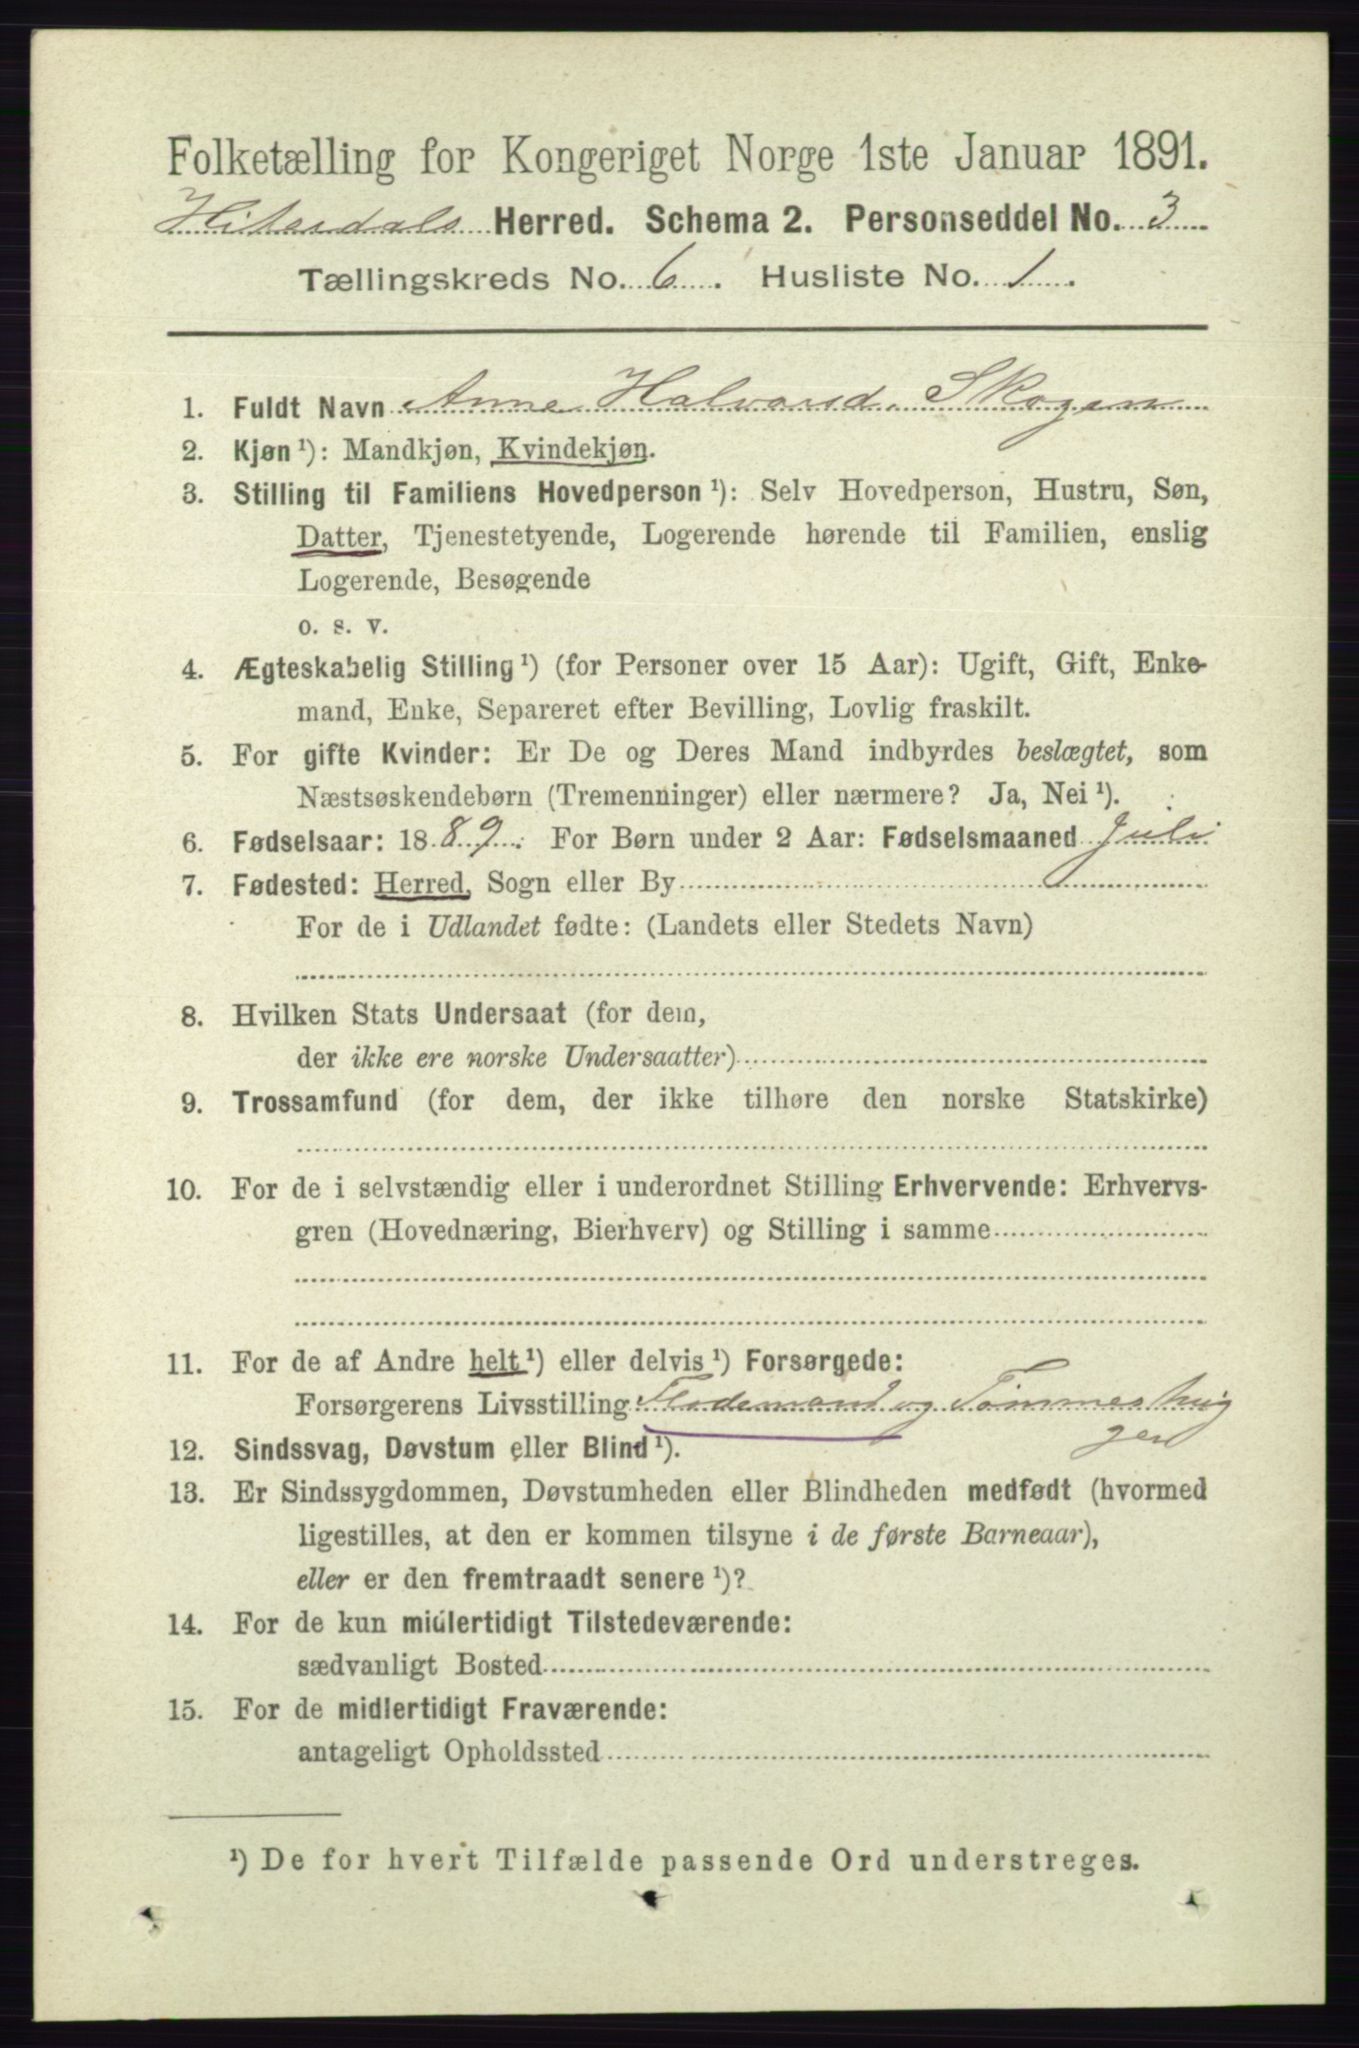 Folketælling for Kongeriget Norge 1ste Januar 1891.
Hiterdals Herred. Schema 2. Personseddel No. 3
Tællingskreds No. 6. Husliste No. 1.
1. Fuldt Navn Anne Halvorsd. Skogen
2. Kjøn ¹): Mandkjøn, Kvindekjøn.
3. Stilling til Familiens Hovedperson ¹): Selv Hovedperson, Hustru, Søn,
Datter, Tjenestetyende, Logerende hørende til Familien, enslig
Logerende, Besøgende
o. s. v.
4. Ægteskabelig Stilling ¹) (for Personer over 15 Aar): Ugift, Gift, Enke-
mand, Enke, Separeret efter Bevilling, Lovlig fraskilt.
5. For gifte Kvinder: Er De og Deres Mand indbyrdes beslægtet, som
Næstsøskendebørn (Tremenninger) eller nærmere? Ja, Nei ¹).
6. Fødselsaar: 1889. For Børn under 2 Aar: Fødselsmaaned Juli
7. Fødested: Herred, Sogn eller By
For de i Udlandet fødte: (Landets eller Stedets Navn)
8. Hvilken Stats Undersaat (for dem,
der ikke ere norske Undersaatter)
9. Trossamfund (for dem, der ikke tilhøre den norske Statskirke)
10. For de i selvstændig eller i underordnet Stilling Erhvervende: Erhvervs-
gren (Hovednæring, Bierhverv) og Stilling i samme
11. For de af Andre helt ¹) eller delvis ¹) Forsørgede:
Forsørgerens Livsstilling og Tømmerhug
ger
12. Sindssvag, Døvstum eller Blind ¹).
13. Er Sindssygdommen, Døvstumheden eller Blindheden medfødt (hvormed
ligestilles, at den er kommen tilsyne i de første Barneaar),
eller er den fremtraadt senere ¹)?
14. For de kun midlertidigt Tilstedeværende:
sædvanligt Bosted
15. For de midlertidigt Fraværende:
antageligt Opholdssted
¹) De for hvert Tilfælde passende Ord understreges.